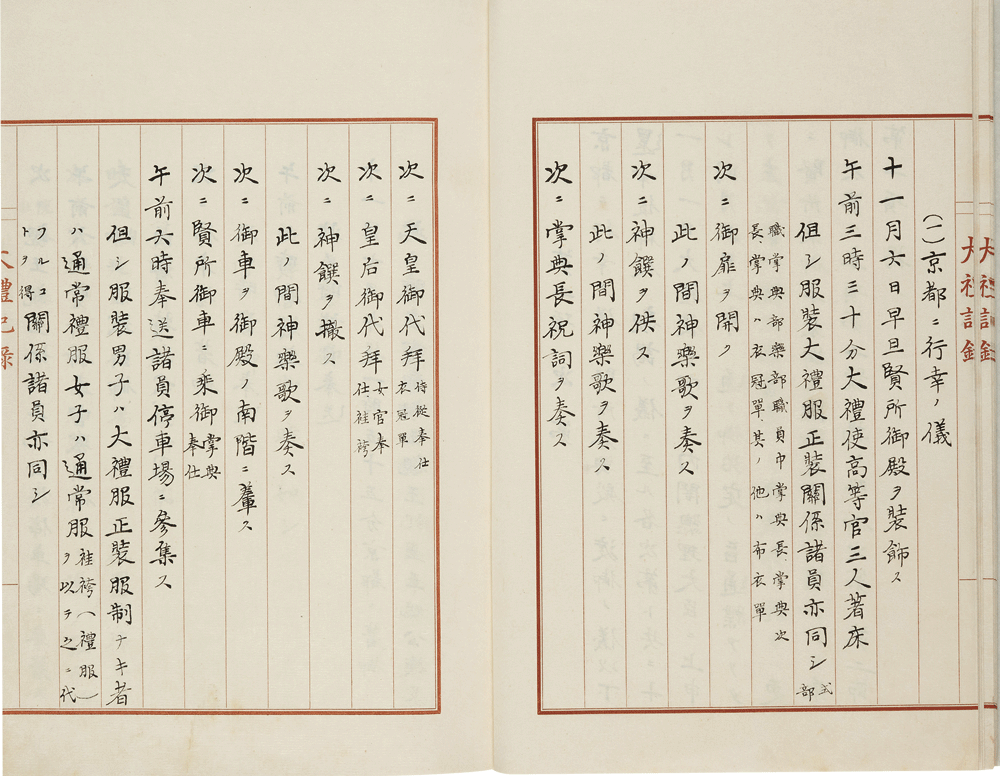 大禮記錄
(一)京都ニ行幸ノ儀
十一月六日早旦賢所御殿ヲ裝飾ス
午前三時三十分大禮使高等官三人著床
但シ服裝大禮服正裝關係諸員亦同シ式部
職掌典部樂部職員中掌典長、掌典次
長、掌典ハ衣冠單、其ノ他ハ布衣單
次ニ御扉ヲ開ク
此ノ間神樂歌ヲ奏ス
次ニ神饌ヲ供ス
此ノ間神樂歌ヲ奏ス
次ニ掌典長祝詞ヲ奏ス
次ニ天皇御代拜侍從奉仕衣冠單
次ニ皇后御代拜女官奉仕、袿袴
次ニ神饌ヲ撤ス
此ノ間神樂歌ヲ奏ス
次ニ御車ヲ御殿ノ南階ニ輦ス
次ニ賢所御車ニ乘御掌典奉仕
午前六時奉送諸員停車場ニ參集ス
但シ服裝男子ハ大禮服正裝服制ナキ者
ハ通常禮服女子ハ通常服袿袴(禮服)ヲ以テ之ニ代
フルコトヲ得關係諸員亦同シ
大禮記錄